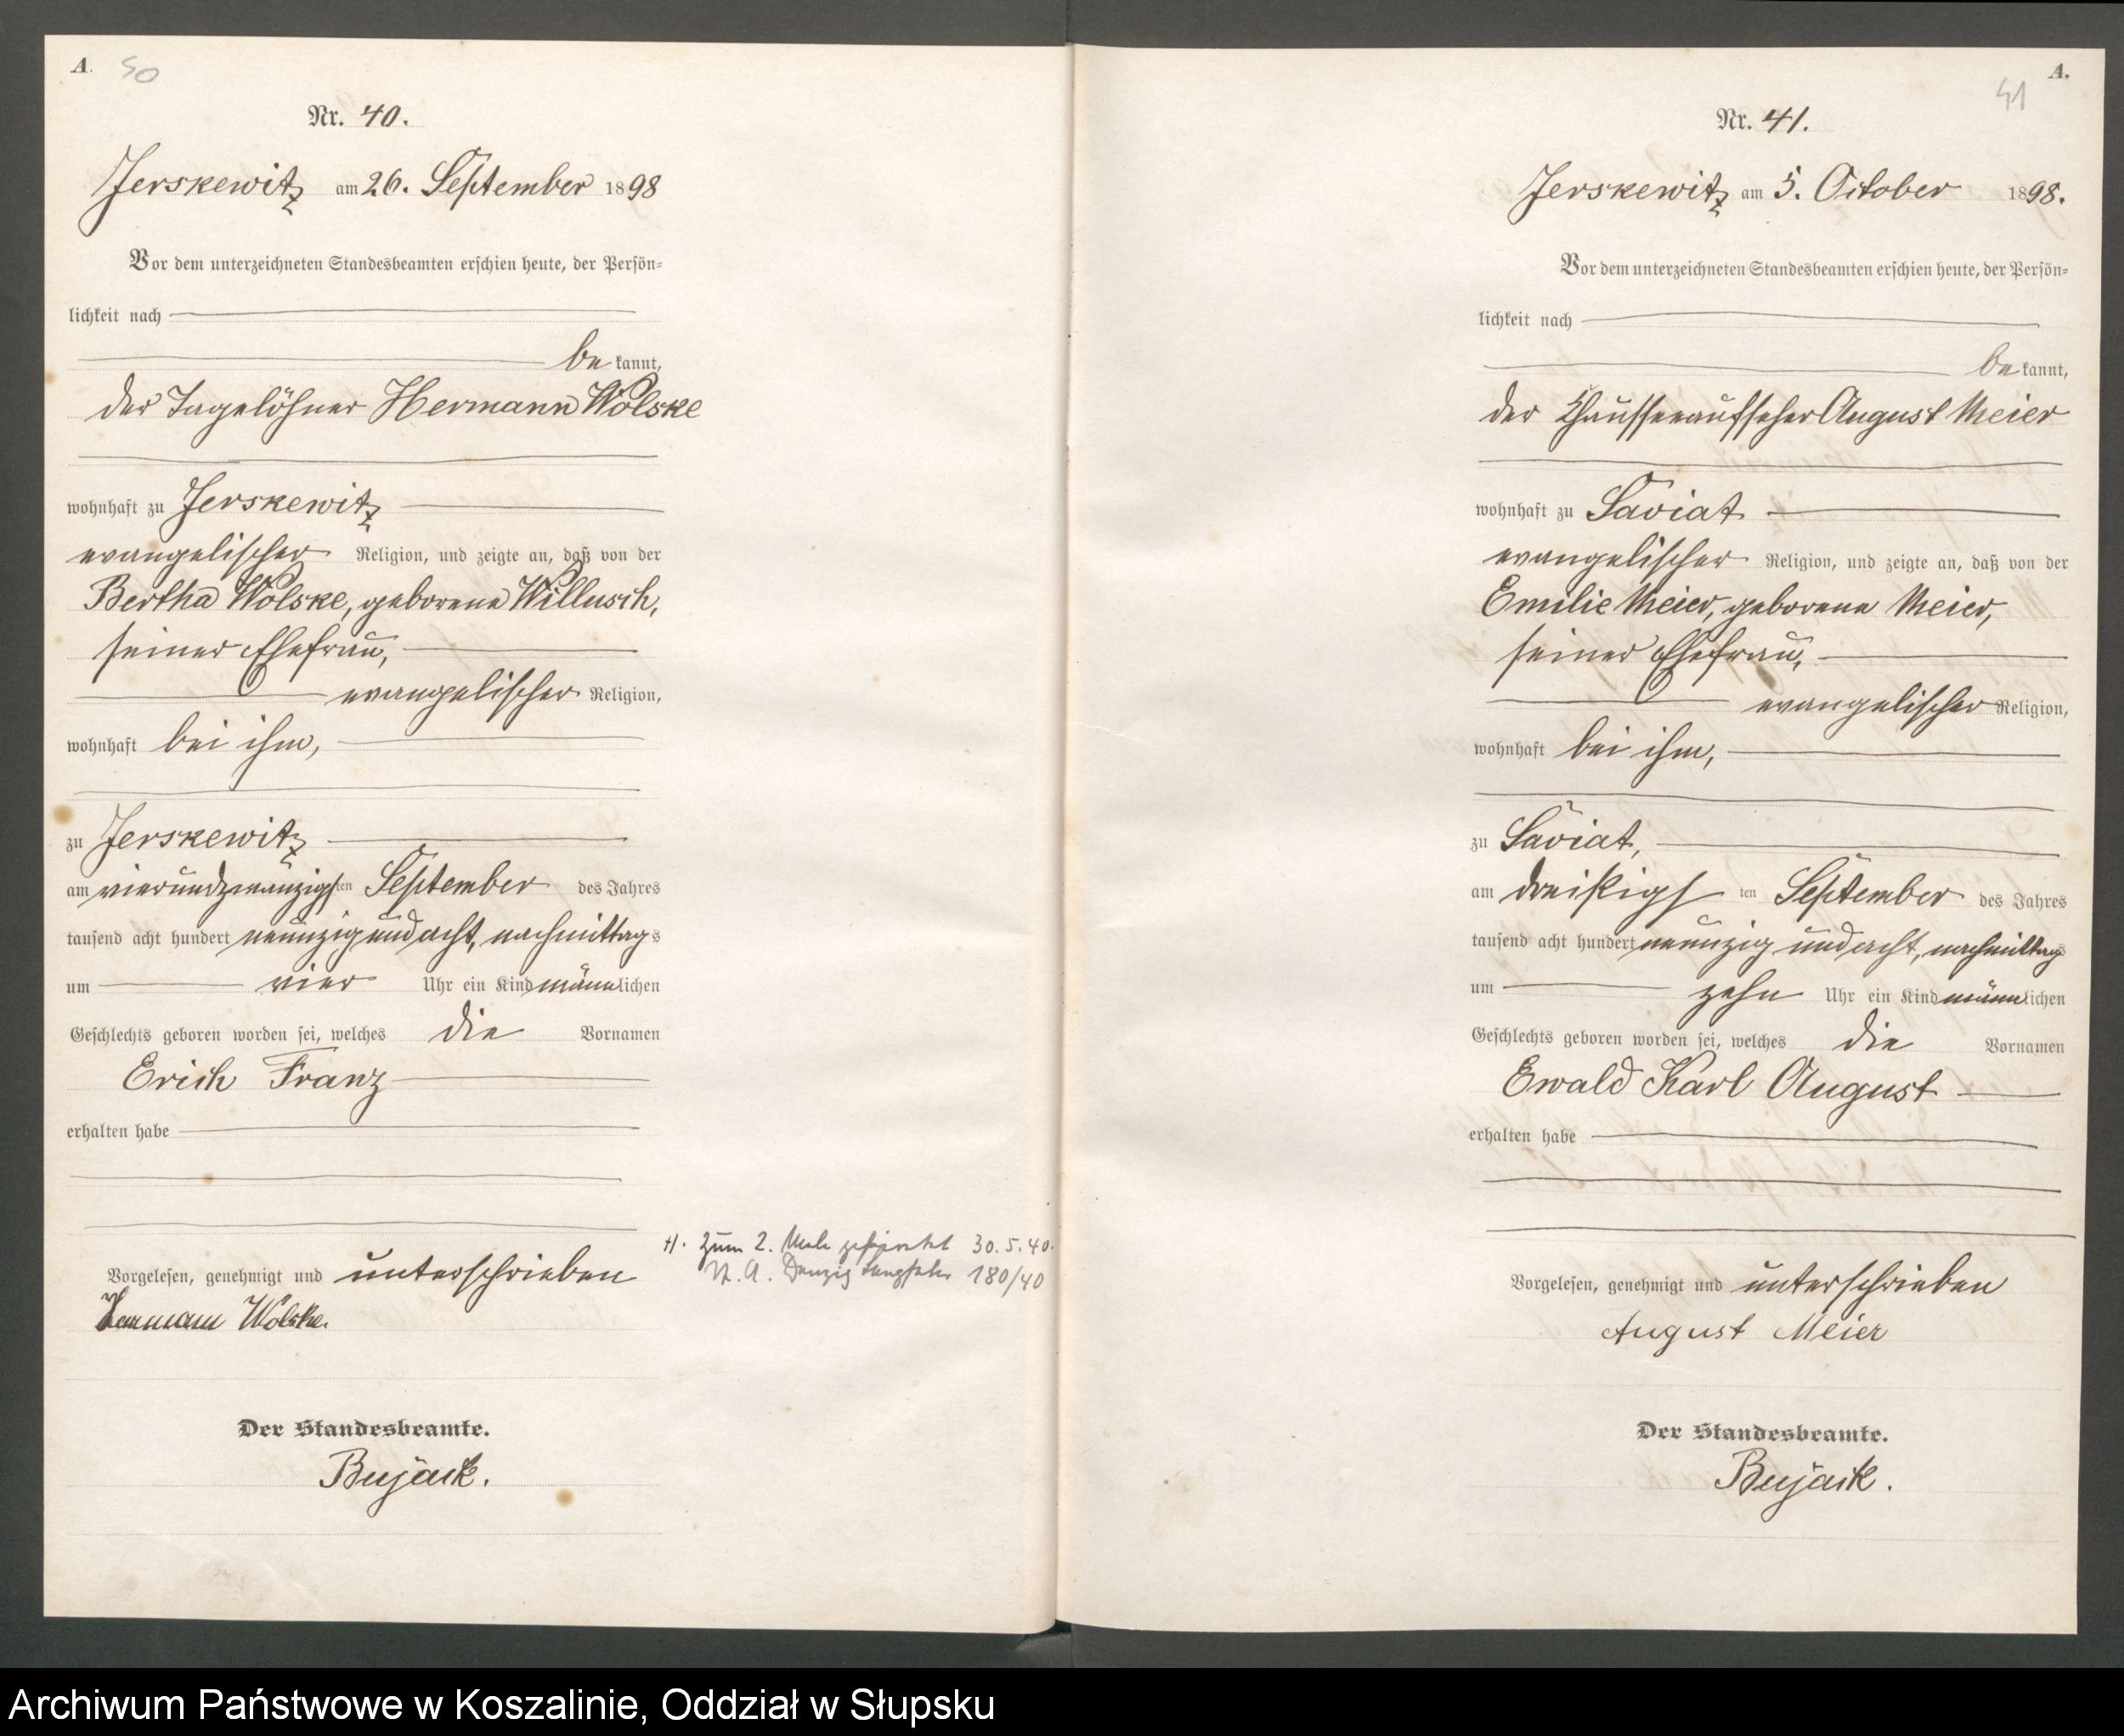 A.
50
Nr. 40.
Jerskewitz am 26. September 1898
Vor dem unterzeichneten Standesbeamten erschien heute, der Persön-
lichkeit nach
bekannt,
der Tagelöhner Hermann Wolske
wohnhaft zu Jerskewitz
evangelischer Religion, und zeigte an, daß von der
Bertha Wolske, geborene Willusch,
seiner Ehefrau,
evangelischer Religion,
wohnhaft bei ihm,
zu Jerskewitz
am vierundzwanzigsten September des Jahres
tausend acht hundert neunzig und acht, nachmittags
um vier Uhr ein Kind männlichen
Geschlechts geboren worden sei, welches die Vornamen
Erich Franz
erhalten habe
H. Zum 2. Male geheiratet 30.5.40.
St. A. Danzig Langfuhr 180/40
Vorgelesen, genehmigt und unterschrieben
Hermann Wolske.
Der Standesbeamte.
Bujack.
A.
41
Nr. 41.
Jerskewitz am 5. October 1898.
Vor dem unterzeichneten Standesbeamten erschien heute, der Persön-
lichkeit nach
bekannt,
der Chausseeaufseher August Meier
wohnhaft zu Saviat
evangelischer Religion, und zeigte an, daß von der
Emilie Meier, geborene Meier,
seiner Ehefrau,
evangelischer Religion,
wohnhaft bei ihm,
zu Saviat,
am dreißigsten September des Jahres
tausend acht hundert neunzig und acht, nachmittags
um zehn Uhr ein Kind männlichen
Geschlechts geboren worden sei, welches die Vornamen
Ewald Karl August
erhalten habe
Vorgelesen, genehmigt und unterschrieben
August Meier
Der Standesbeamte.
Bujack.
Archiwum Państwowe w Koszalinie, Oddział w Słupsku